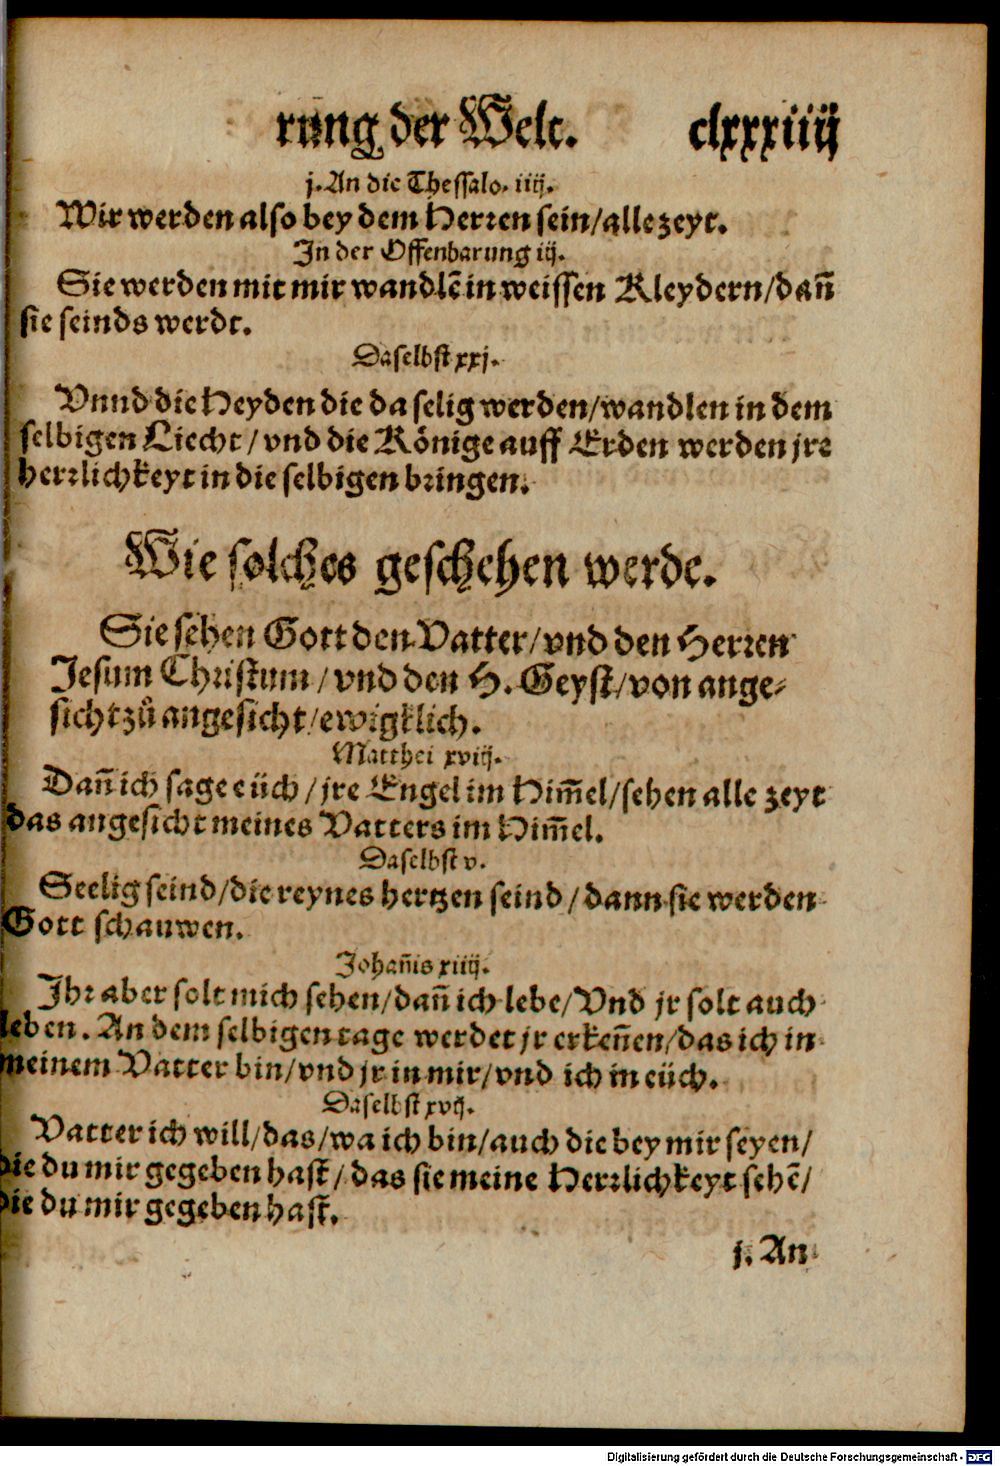 rung der Welt. clxxxiiij
j. An die Thessalo. iiij.
Wir werden also bey dem Herren sein/alle zeyt.
In der Offenbarung iij.
Sie werden mit mir wandlẽ in weissen Kleydern/dañ
sie seinds werdt.
Daselbst xxj.
Vnnd die Heyden die da selig werden/wandlen in dem
selbigen Liecht/vnd die Könige auff Erden werden jre
herrlichkeyt in die selbigen bringen.
Wie solches geschehen werde.
Sie sehen Gott den Vatter/vnd den Herren
Jesum Christum/vnd den H. Geyst/von ange-
sicht zů angesicht/ewigklich.
Matthei xviij.
Dañ ich sage eüch/jre Engel im Him̃el/sehen alle zeyt
das angesicht meines Vatters im Him̃el.
Daselbst v.
Seelig seind/die reynes hertzen seind/dann sie werden
Gott schauwen.
Johañis xiiij.
Ihr aber solt mich sehen/dañ ich lebe/Vnd jr solt auch
leben. An dem selbigen tage werdet jr erkeñen/das ich in
meinem Vatter bin/vnd jr in mir/vnd ich in eüch.
Daselbst xvij.
Vatter ich will/das/wa ich bin/auch die bey mir seyen/
die du mir gegeben hast/das sie meine Herrlichkeyt sehẽ/
die du mir gegeben hast.
j. An
Digitalisierung gefördert durch die Deutsche Forschungsgemeinschaft - DFG